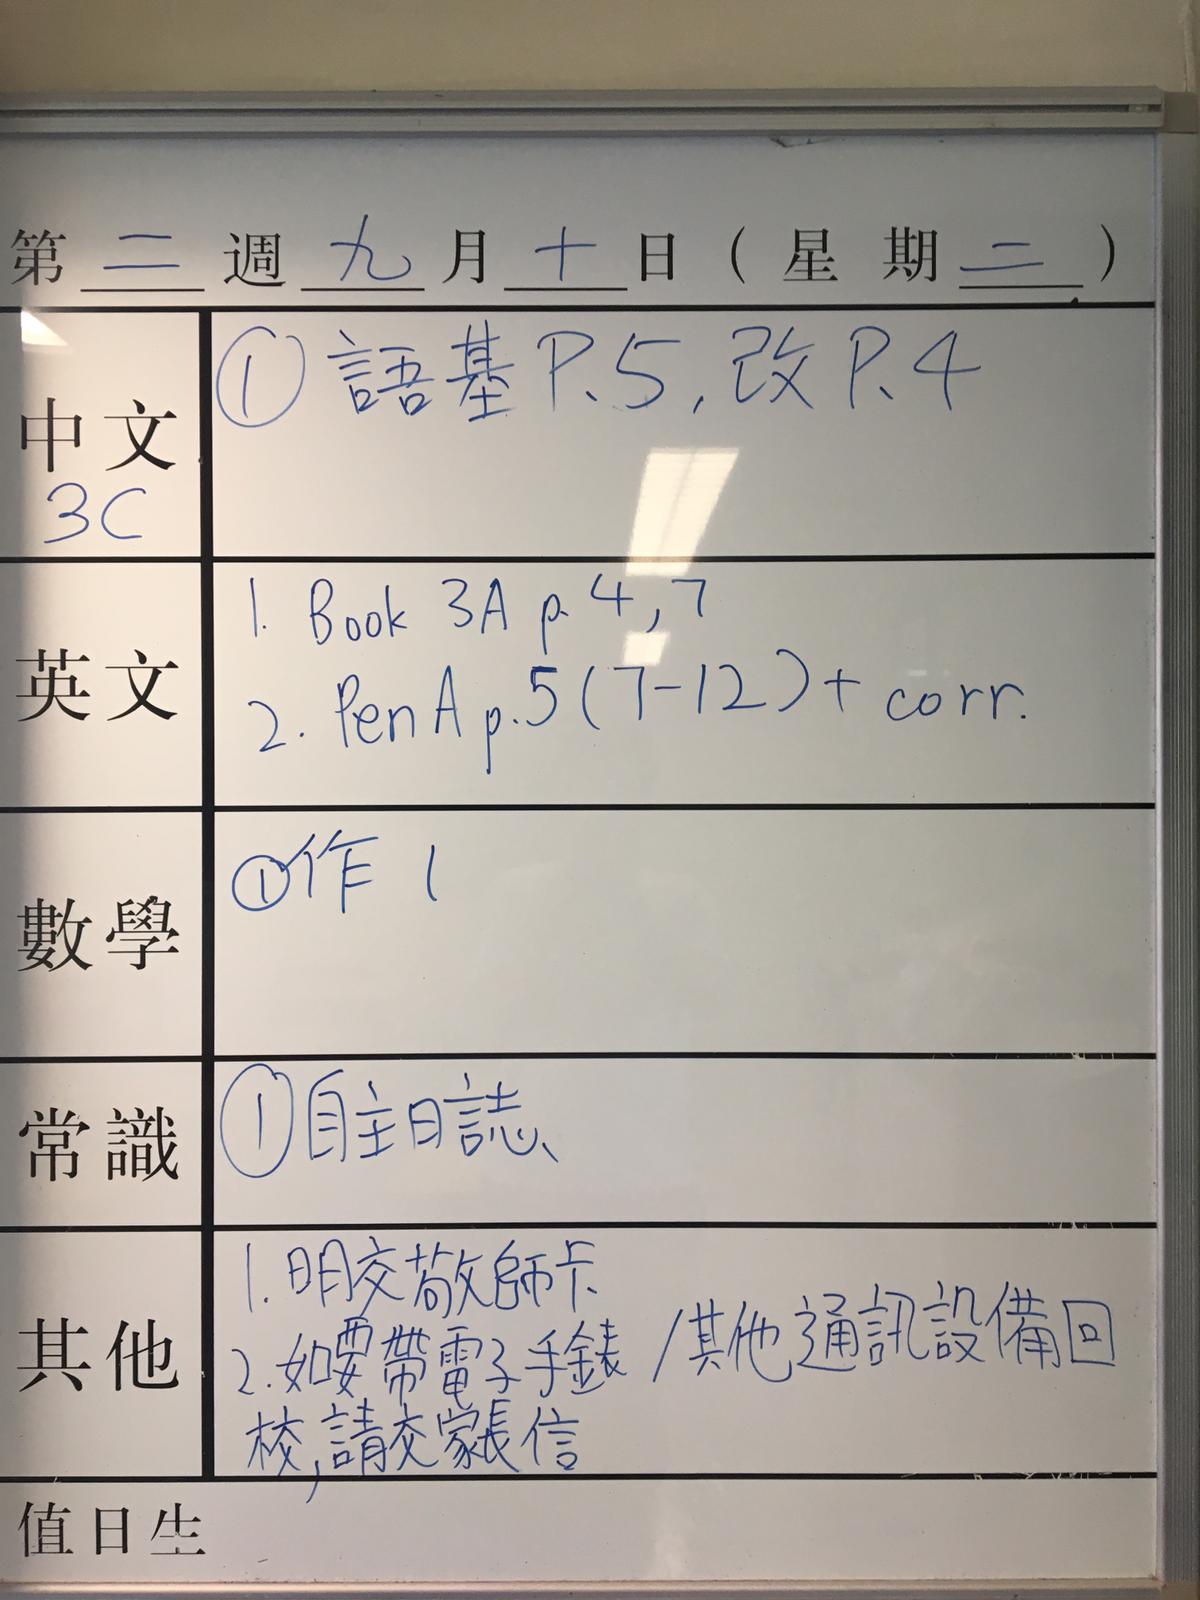 第二週九月十日(星期二)
中文
3C
① 語基 P.5, 改 P.4
英文
1. Book 3A p. 4, 7
2. Pen A p.5 (7-12) + corr.
數學
①作 1
常識
①自主日誌
其他
1. 明交敬師卡
2. 如要帶電子手錶/其他通訊設備回
校,請交家長信
值日生